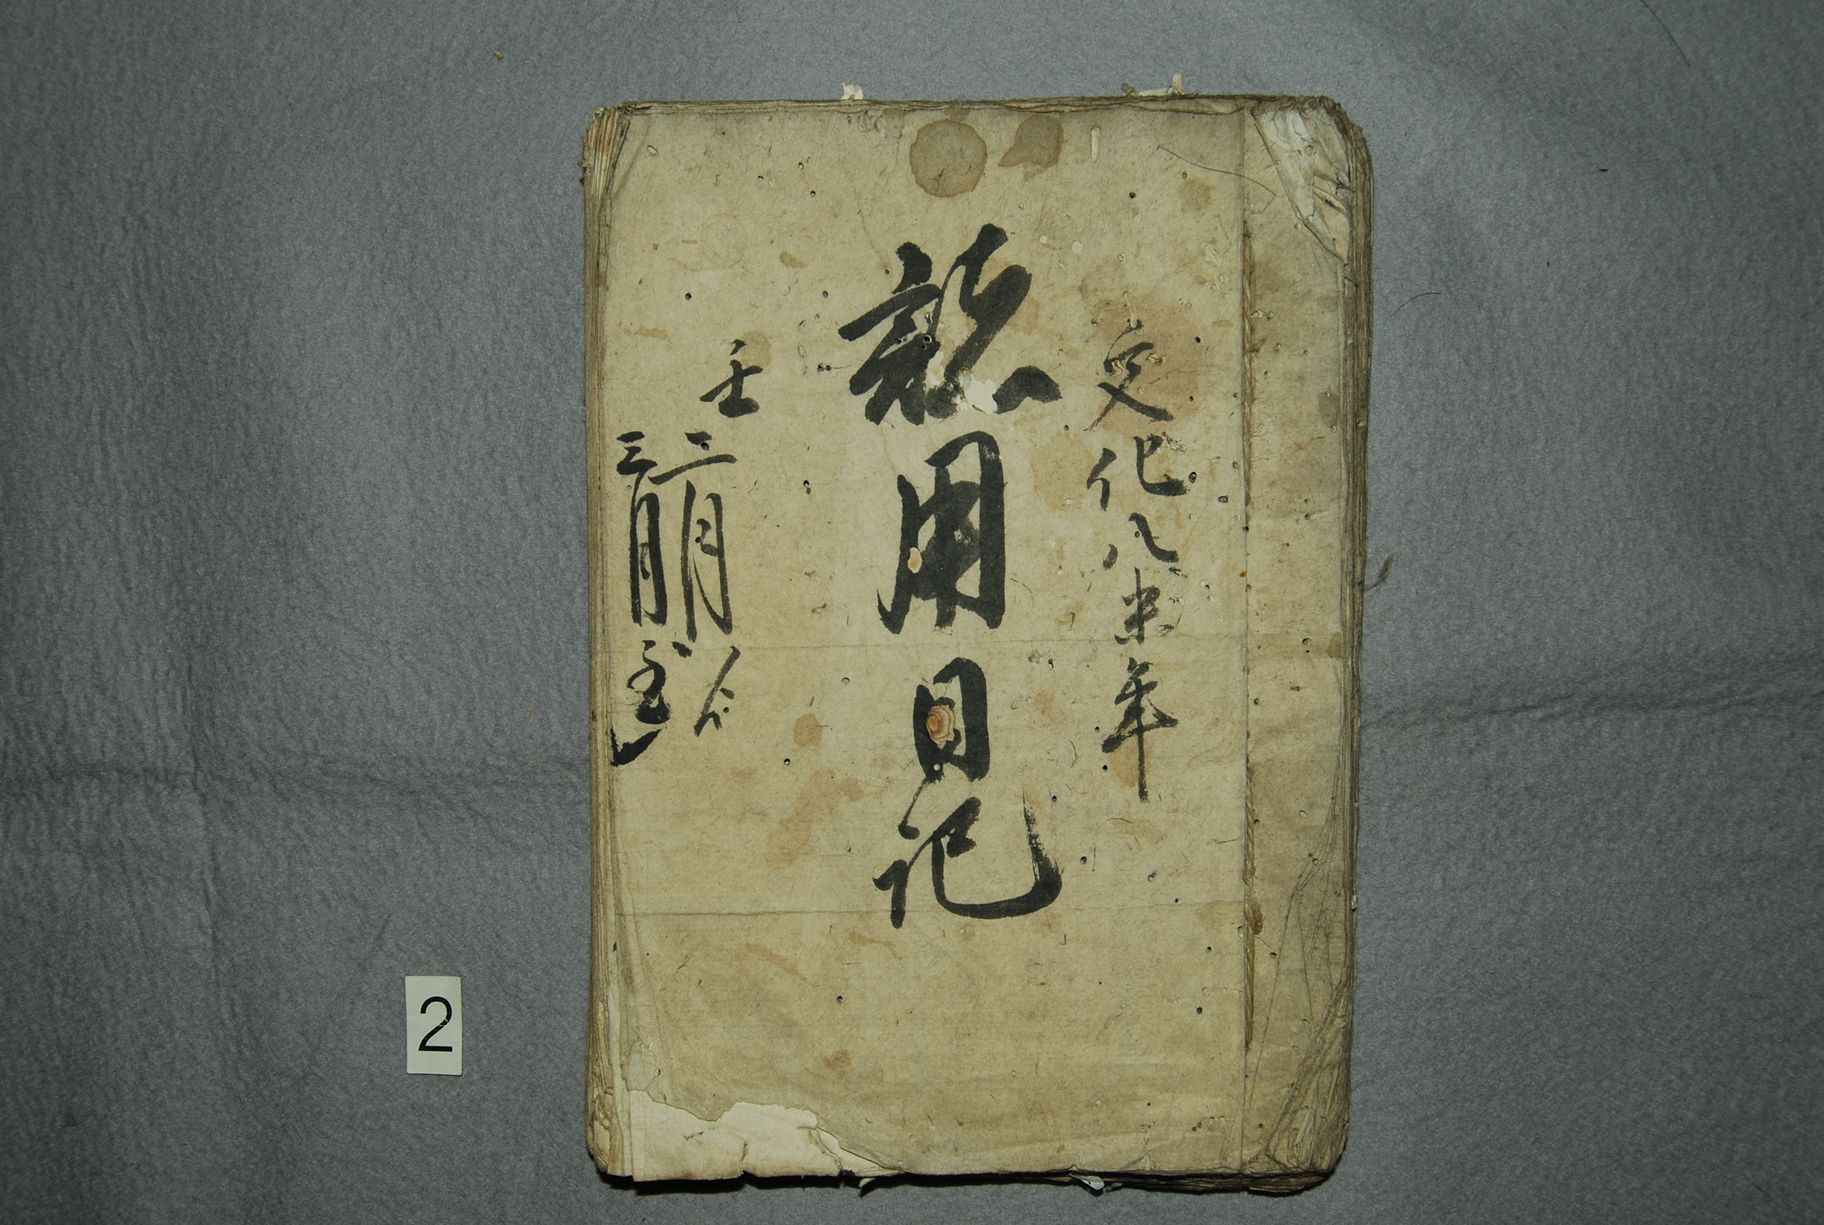 文化八未年
用日記
壬二月ゟ
三月至